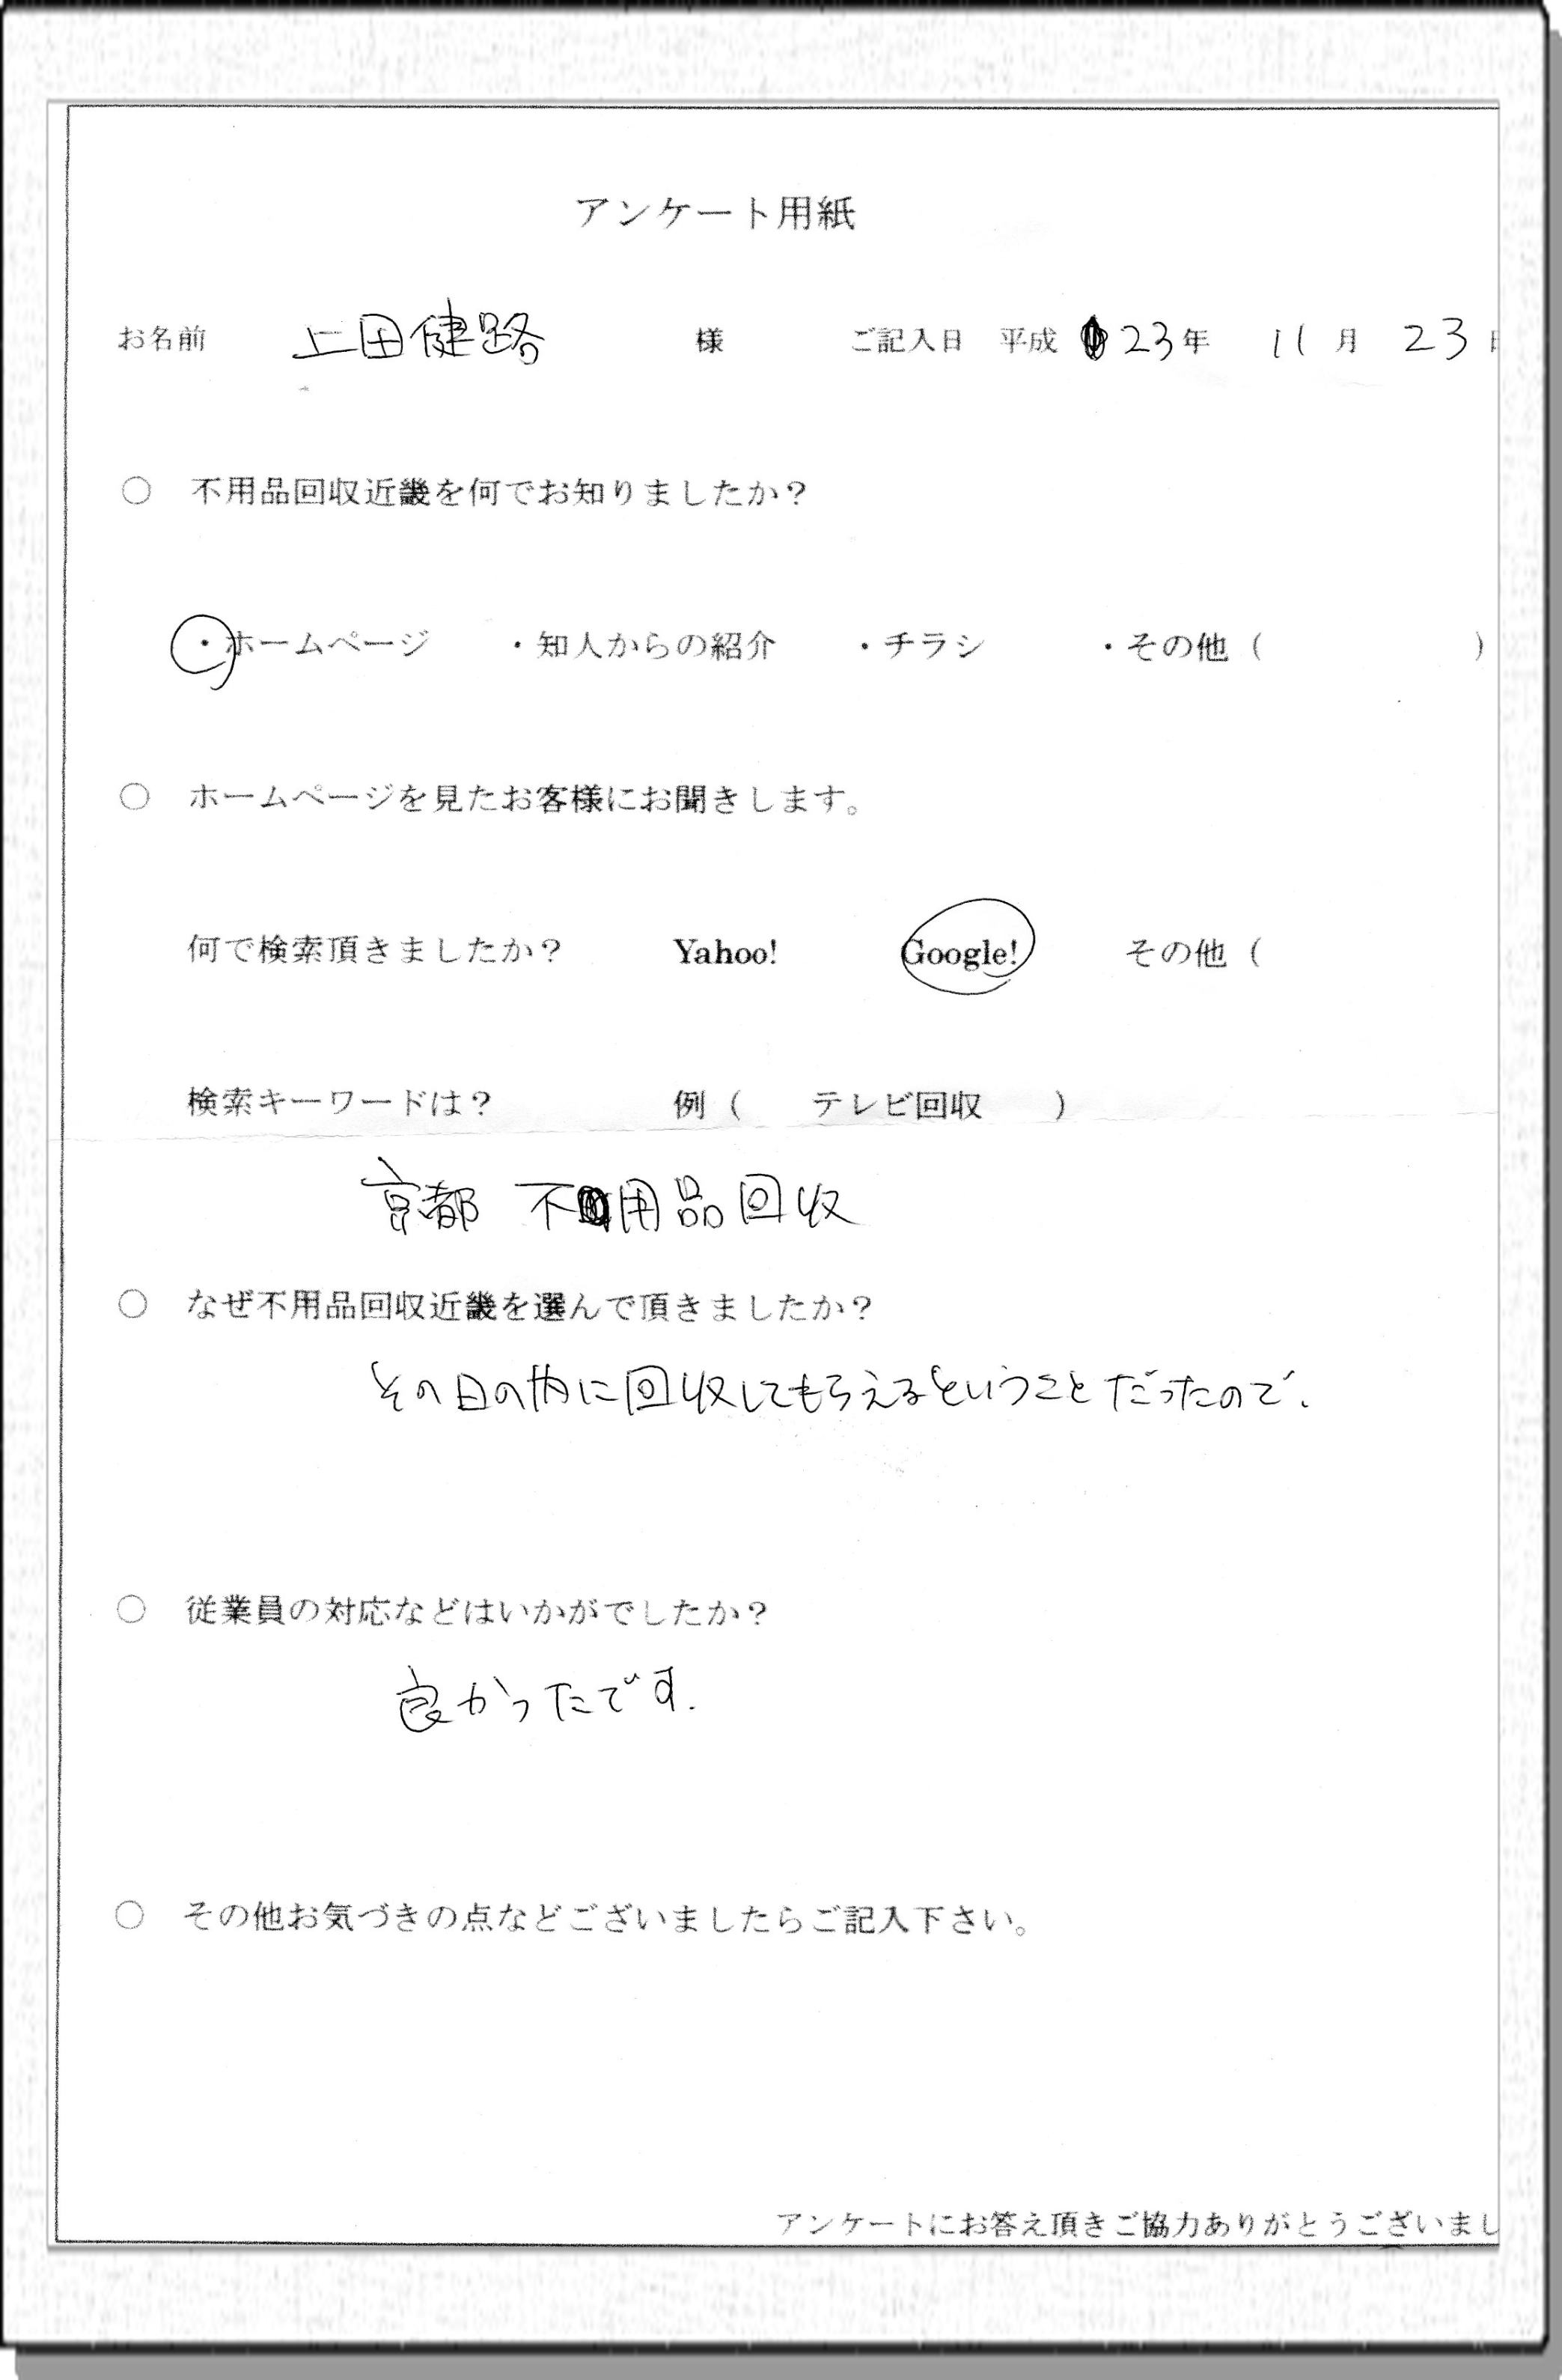 アンケート用紙
お名前 上田健路 様 ご記入日 平成 23年 11月 23日
○ 不用品回収近畿を何でお知りましたか？
・ホームページ ・知人からの紹介 ・チラシ ・その他（ ）
○ ホームページを見たお客様にお聞きします。
何で検索頂きましたか？ Yahoo! Google! その他（
検索キーワードは？ 例（ テレビ回収 ）
京都 不用品回収
○ なぜ不用品回収近畿を選んで頂きましたか？
その日の内に回収してもらえるということだったので、
○ 従業員の対応などはいかがでしたか？
良かったです.
○ その他お気づきの点などございましたらご記入下さい。
アンケートにお答え頂きご協力ありがとうございまし